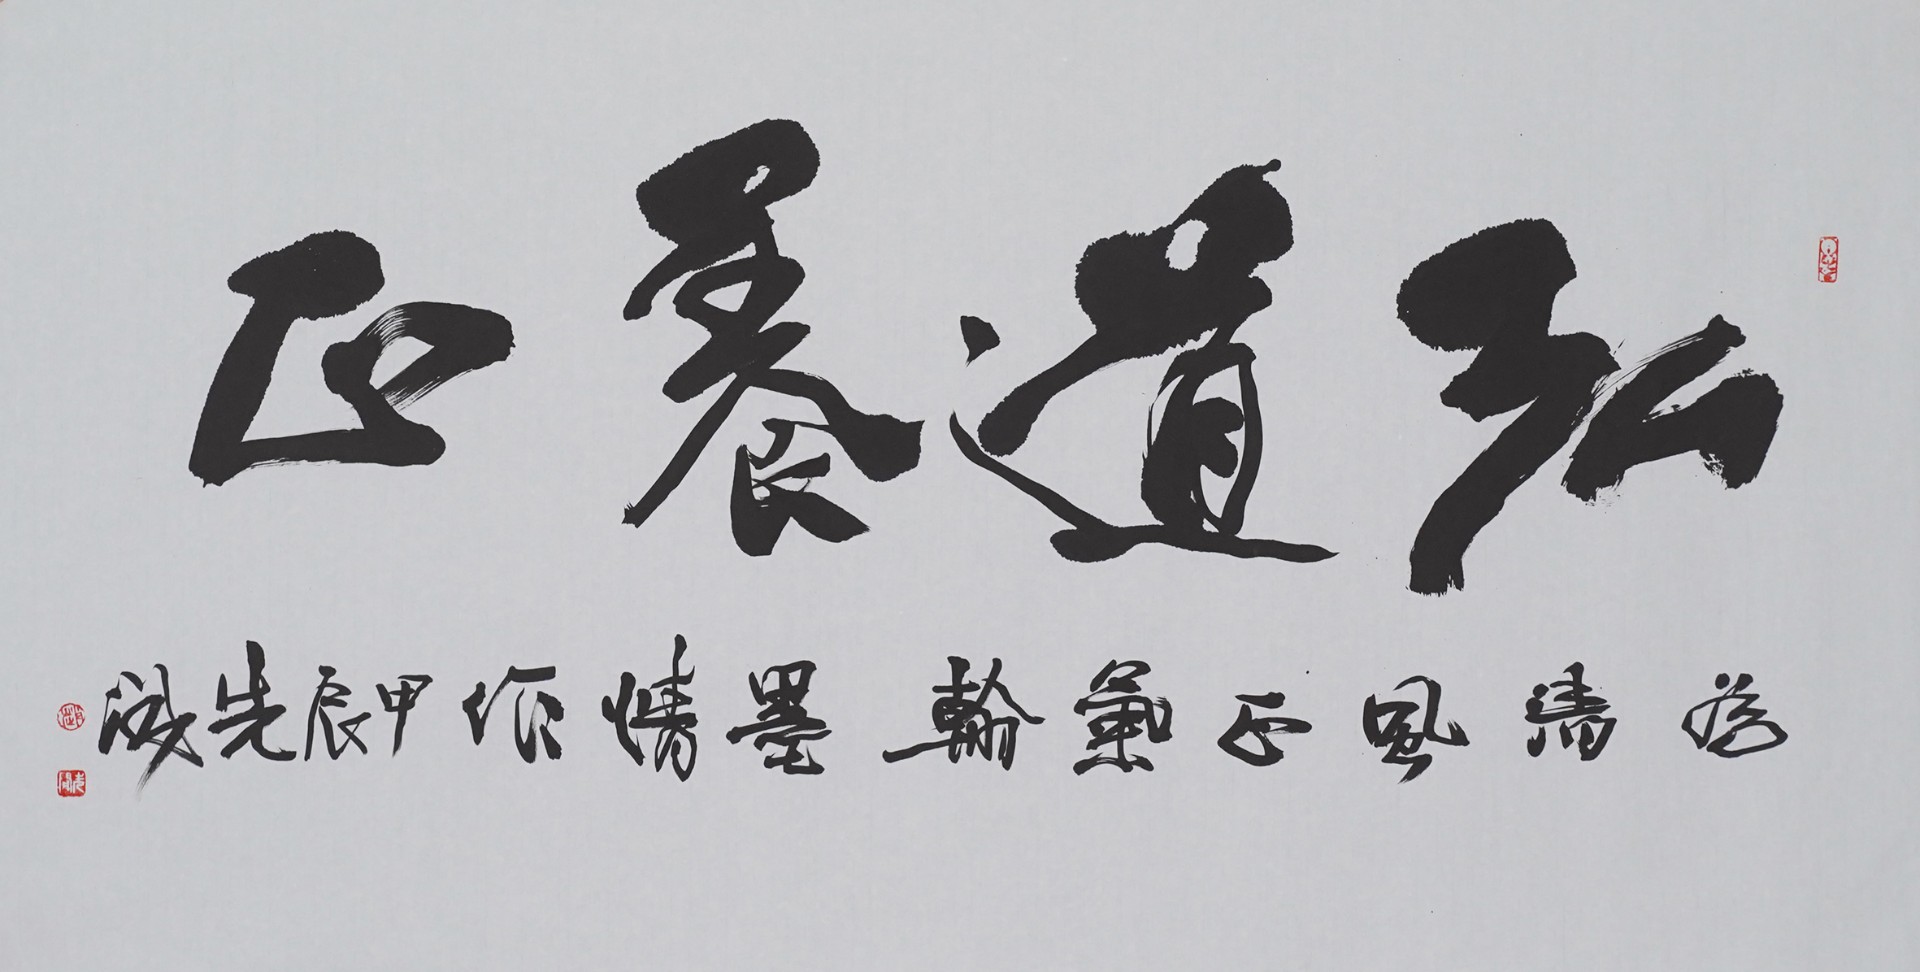 弘道養正
為清風正氣翰墨情作甲辰先誠